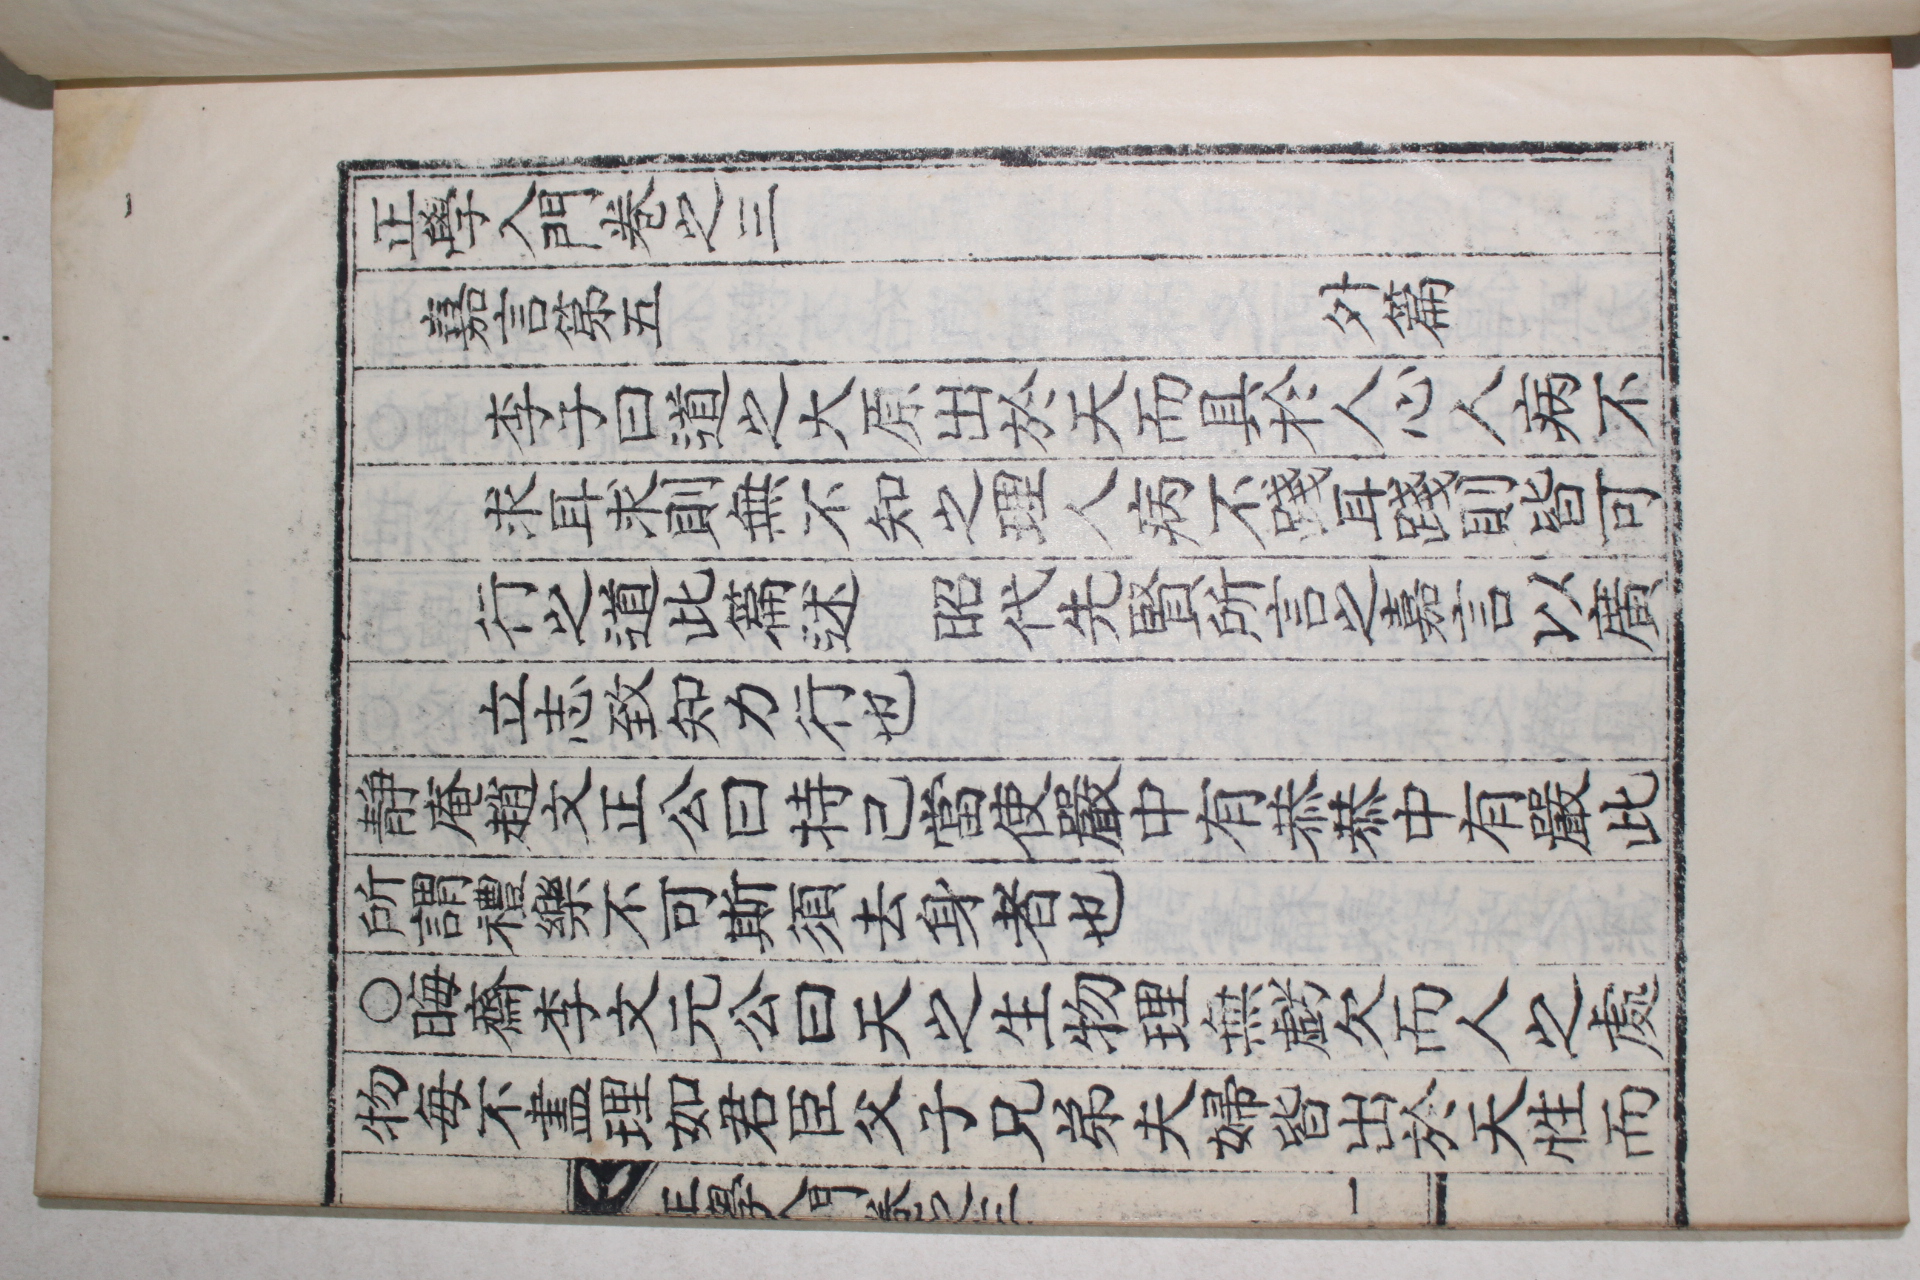 正學入門卷之三
嘉言第五 外篇
李子曰道之大原出於天而具於人心人病不
求耳求則無不知之理人病不踐耳踐則皆可
行之道此篇述 昭代先賢所言之嘉言以廣
立志致知力行也
静庵趙文正公曰持己當使嚴中有恭恭中有嚴此
所謂禮樂不可斯須去身者也
○晦齋李文元公曰天之生物理無虧欠而人之處
物每不盡理如君臣父子兄弟夫婦皆出於天性而
正學入門卷之三 一